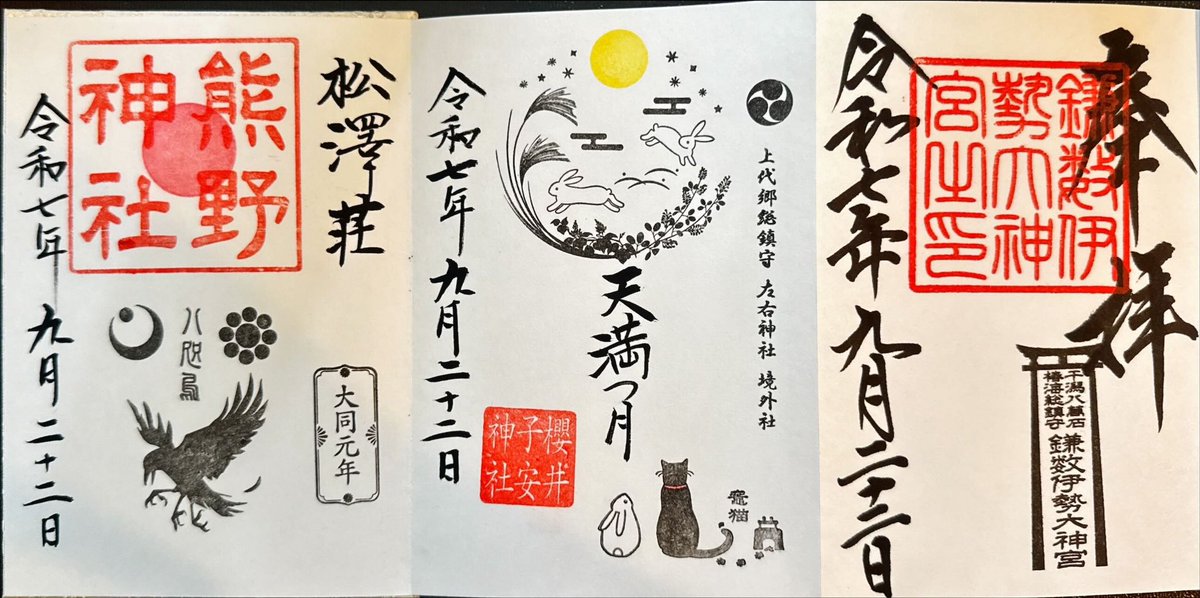 松澤荘
熊野
神社
八咫烏
大同元年
令和七年 九月二十二日
上代郷総鎮守 左右神社 境外社
天満つ月
竈猫
櫻井
子安
神社
令和七年 九月二十二日
奉拝
鎌数伊
勢大神
宮之印
干潟八萬石
椿海総鎮守
鎌数伊勢大神宮
令和七年九月二十二日